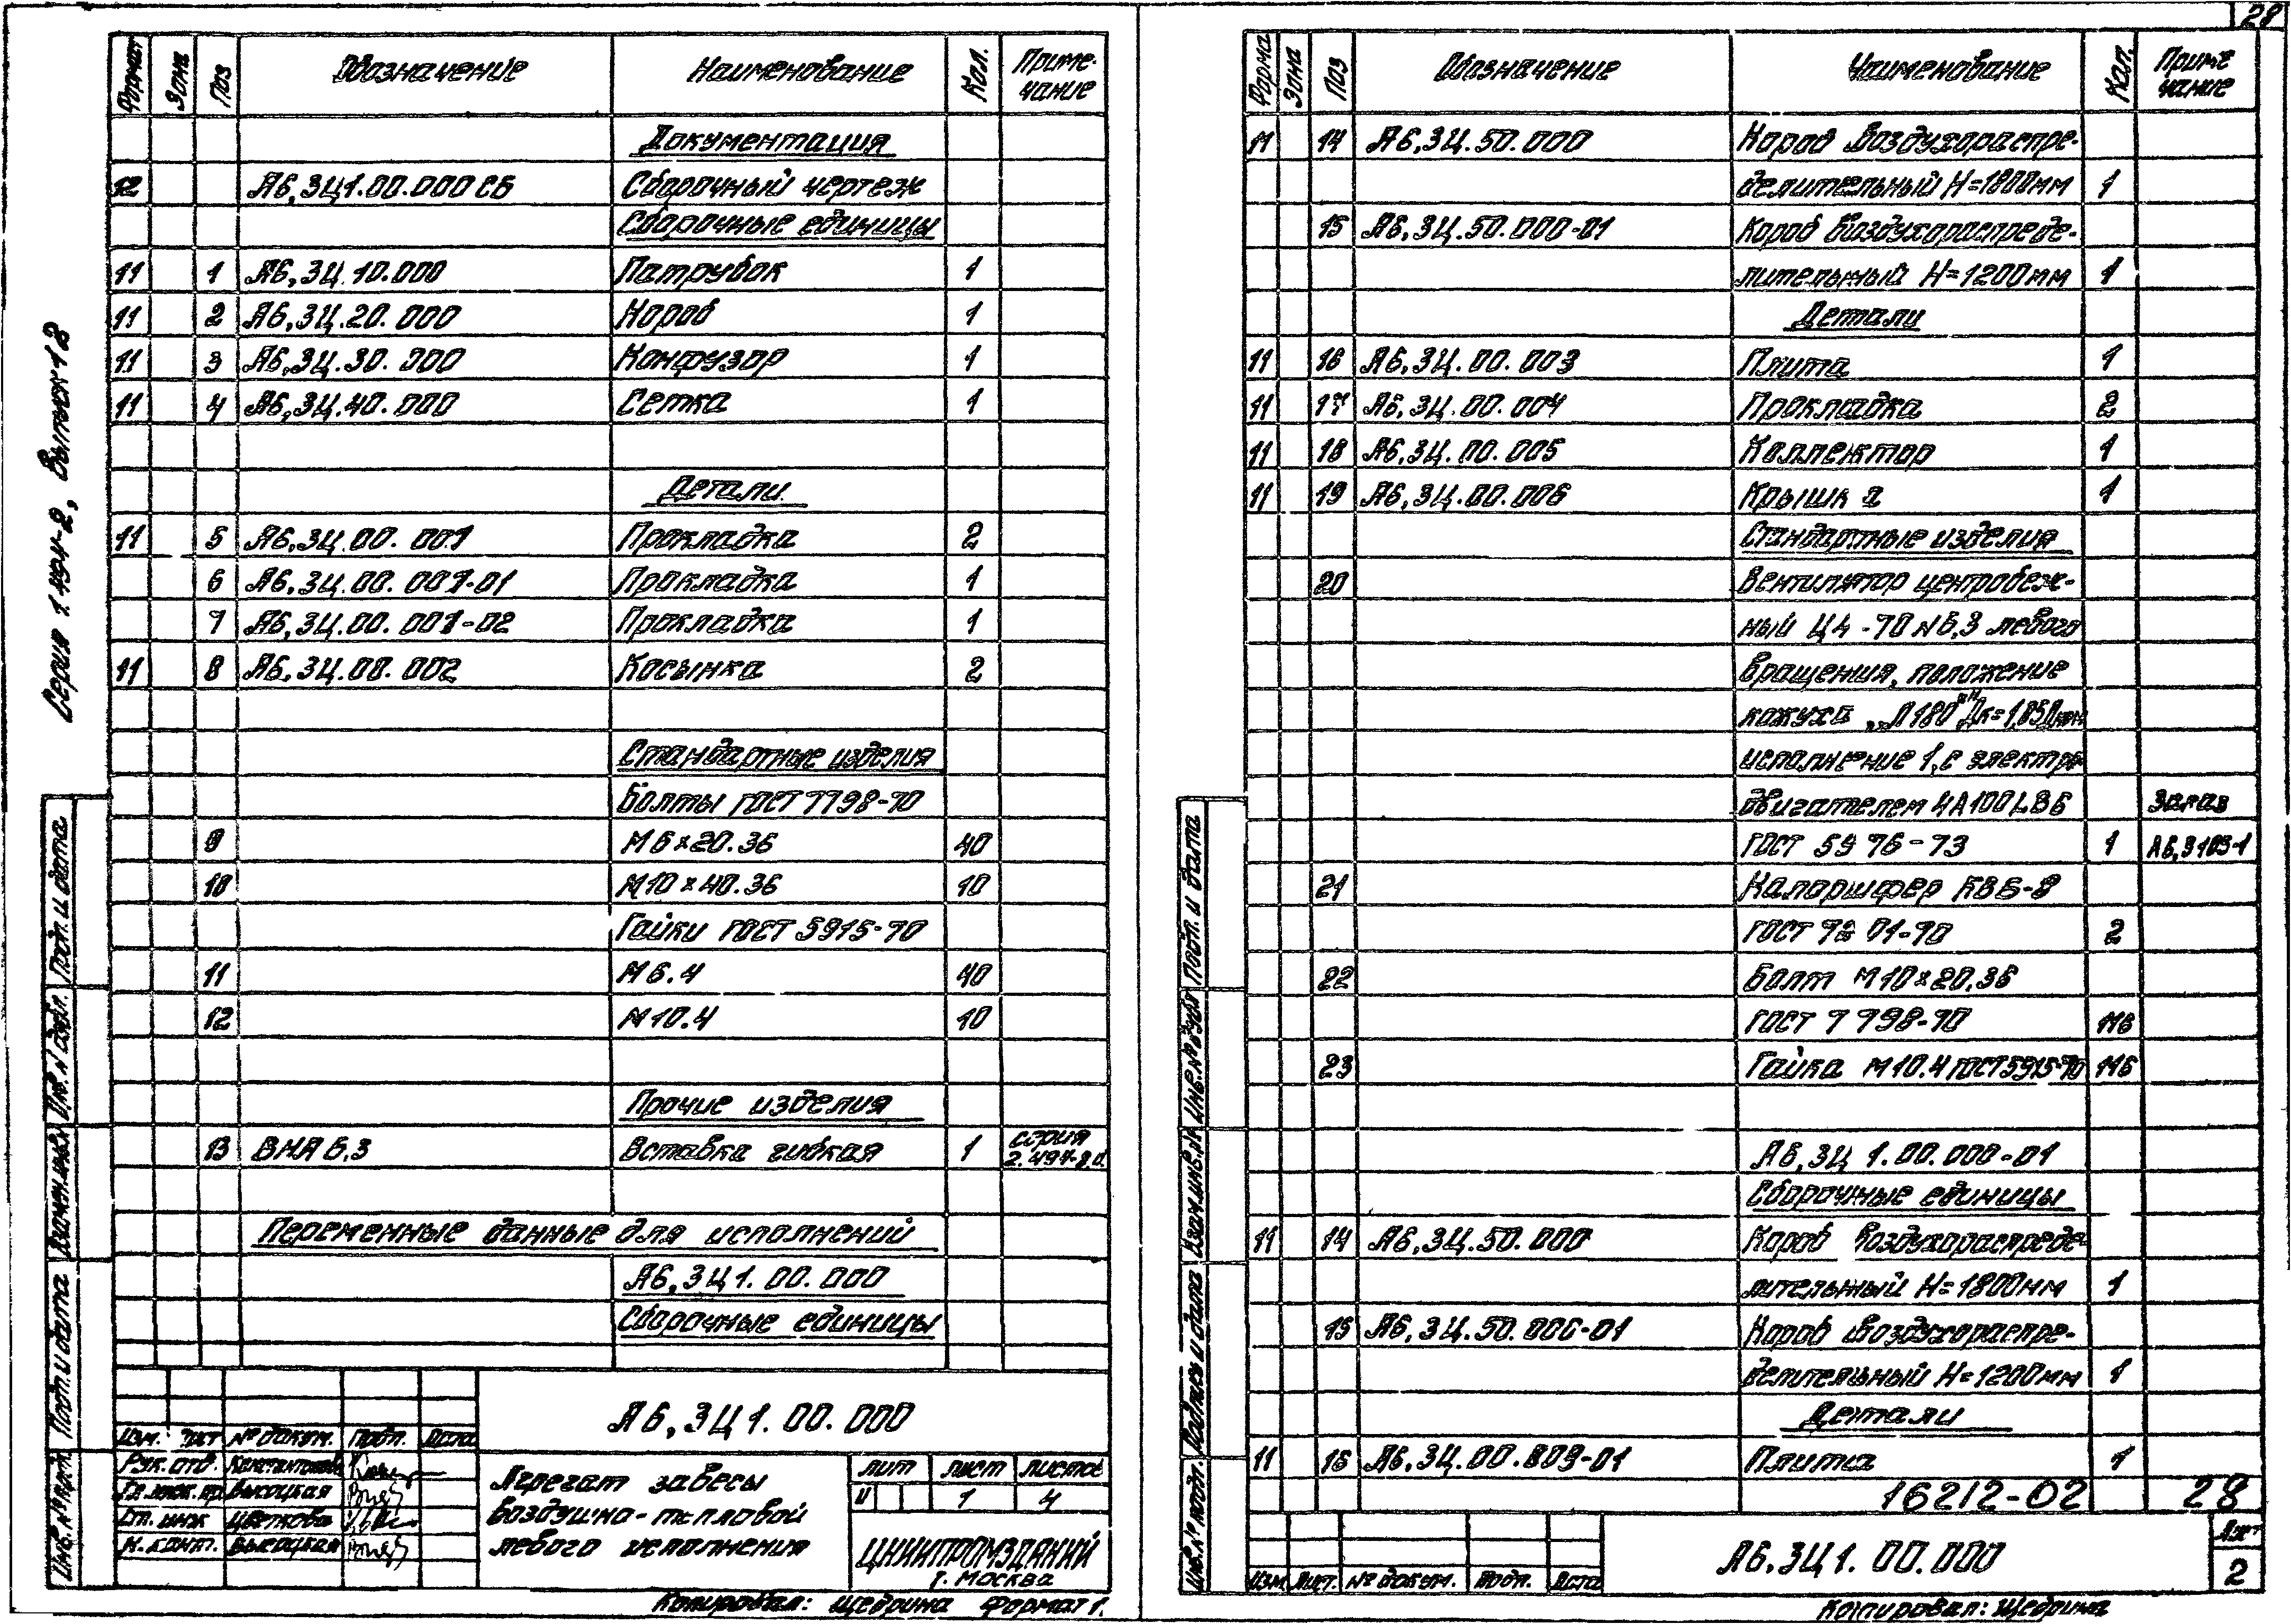 28
Серия 1.494-2, Выпуск 12
Формат Зона Поз Обозначение Наименование Кол. Приме-
чание
Документация
12 А6,3Ц1.00.000СБ Сборочный чертеж
Сборочные единицы
11 1 А6,3Ц.10.000 Патрубок 1
11 2 А6,3Ц.20.000 Короб 1
11 3 А6,3Ц.30.000 Конфузор 1
11 4 А6,3Ц.40.000 Сетка 1
Детали
11 5 А6,3Ц.00.001 Прокладка 2
6 А6,3Ц.00.001-01 Прокладка 1
7 А6,3Ц.00.001-02 Прокладка 1
11 8 А6,3Ц.00.002 Косынка 2
Стандартные изделия
Болты ГОСТ 7798-70
9 М6×20.36 40
10 М10×40.36 10
Гайки ГОСТ 5915-70
11 М6.4 40
12 М10.4 10
Прочие изделия
13 ВНА 6,3 Вставка гибкая 1 серия
Переменные данные для исполнений
А6,3Ц1.00.000
Сборочные единицы
А6,3Ц1.00.000
Изм. Лист № докум. Подп. Дата
Рук. отд. Константинова
Гл. инж. пр. Высоцкая
Ст. инж Цветкова
Н. конт. Высоцкая
Агрегат завесы
воздушно-тепловой
левого исполнения
Лит Лист Листов
И 1 4
ЦНИИПРОМЗДАНИЙ
г. Москва
Копировал: Щедрина Формат 1.
Подп. и дата
Инв. № дубл.
Взамен инв. №
Подп. и дата
Инв. № подл.
Форма Зона Поз Обозначение Наименование Кол. Приме
чание
11 14 А6,3Ц.50.000 Короб воздухораспре-
делительный Н=1800мм 1
15 А6,3Ц.50.000-01 Короб воздухораспреде-
лительный Н=1200мм 1
Детали
11 16 А6,3Ц.00.003 Плита 1
11 17 А6,3Ц.00.004 Прокладка 2
11 18 А6,3Ц.00.005 Коллектор 1
11 19 А6,3Ц.00.006 Крышка 1
Стандартные изделия
20 Вентилятор центробеж-
ный Ц4-70 №6,3 левого
вращения, положение
кожуха „Л180°" Дк=1,05Дном
исполнение 1, с электро
двигателем 4А100LВ6 Заказ
ГОСТ 5976-73 1 А6,3105-1
21 Калорифер КВБ-8
ГОСТ 7201-70 2
22 Болт М10×20.36
ГОСТ 7798-70 116
23 Гайка М10.4 ГОСТ 5915-70 116
А6,3Ц1.00.000-01
Сборочные единицы
11 14 А6,3Ц.50.000 Короб воздухораспреде-
лительный Н=1800мм 1
15 А6,3Ц.50.000-01 Короб воздухораспре-
делительный Н=1200мм 1
Детали
11 16 А6,3Ц.00.003-01 Плита 1
16212-02 28
А6,3Ц1.00.000
Изм Лист. № докум. Подп. Дата
Лист
2
Копировал: Щедрина
Подп. и дата
Инв. № дубл
Взам. инв. №
Подпись и дата
Инв. № подл.